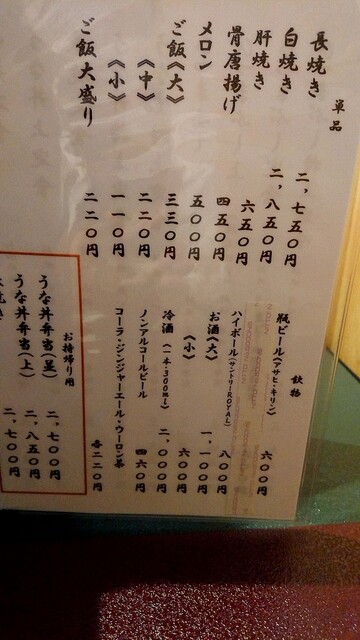 単品
長焼き 二,七五〇円
白焼き 二,八五〇円
肝焼き 六五〇円
骨唐揚げ 四五〇円
メロン 五〇〇円
ご飯《大》 三三〇円
《中》 二二〇円
《小》 一一〇円
ご飯大盛り 二二〇円
飲物
瓶ビール(アサヒ・キリン) 六〇〇円
ハイボール(サントリーROYAL) 八〇〇円
お酒《大》 一,一〇〇円
《小》 六〇〇円
冷酒(一本・300ml) 二,〇〇〇円
ノンアルコールビール 四六〇円
コーラ・ジンジャーエール・ウーロン茶 各二二〇円
お持帰り用
うな丼弁当(並) 二,七〇〇円
うな丼弁当(上) 二,八五〇円
二,七〇〇円